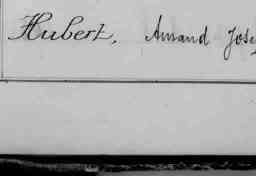 Hubert, Amand Jose